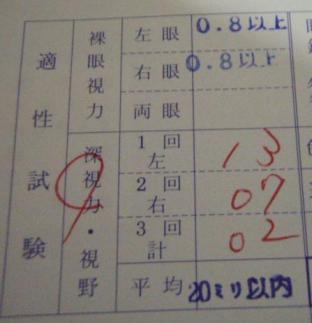 適性試験
裸眼視力
左眼 0.8以上
右眼 0.8以上
両眼
深視力・視野
1回左 13
2回右 07
3回計 02
平均 20ミリ以内